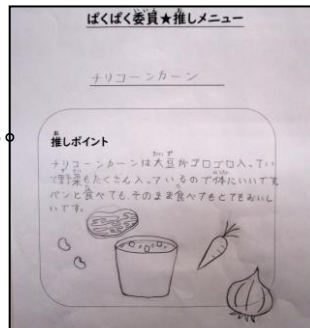 ぱくぱく委員★推しメニュー
チリコーンカーン
推しポイント
チリコーンカーンは大豆がゴロゴロ入ってい
て野菜もたくさん入っているので体にいいです。
パンと食べても、そのまま食べてもとてもおいし
いです。